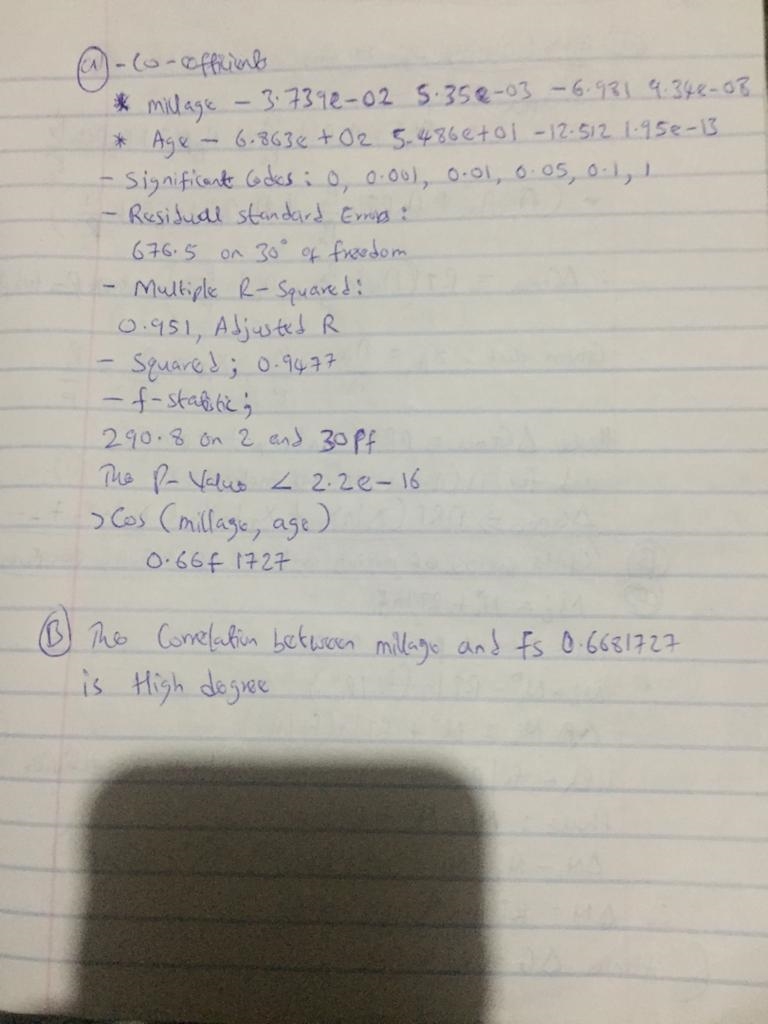 (a) - Co-efficients
* millage - 3.739e-02 5.35e-03 -6.981 9.34e-08
* Age - 6.863e + 02 5.486e+01 -12.512 1.95e-13
- Significant Codes: 0, 0.001, 0.01, 0.05, 0.1, 1
- Residual standard Errors:
676.5 on 30° of freedom
- Multiple R-Squared:
0.951, Adjusted R
- Squared; 0.9477
- f-statistic;
290.8 on 2 and 30 Pf
The P-Value < 2.2e-16
> Cos (millage, age)
0.66f 1727
(B) The Correlation between millage and Fs 0.6681727
is High degree